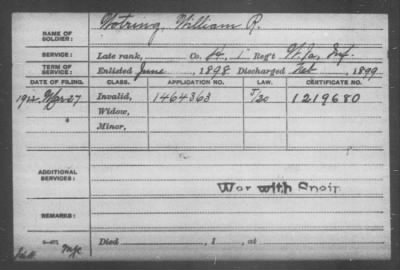 NAME OF SOLDIER: Wotring, William R.
SERVICE: Late rank, Co. H, 1" Reg't W. Va. Inf.
TERM OF SERVICE: Enlisted June, 1898 Discharged Feb, 1899
DATE OF FILING. CLASS. APPLICATION NO. LAW. CERTIFICATE NO.
Mar 27 Invalid, 1464363 1219680
Widow,
Minor,
ADDITIONAL SERVICES:
War with Spain
REMARKS:
Died, 1, at